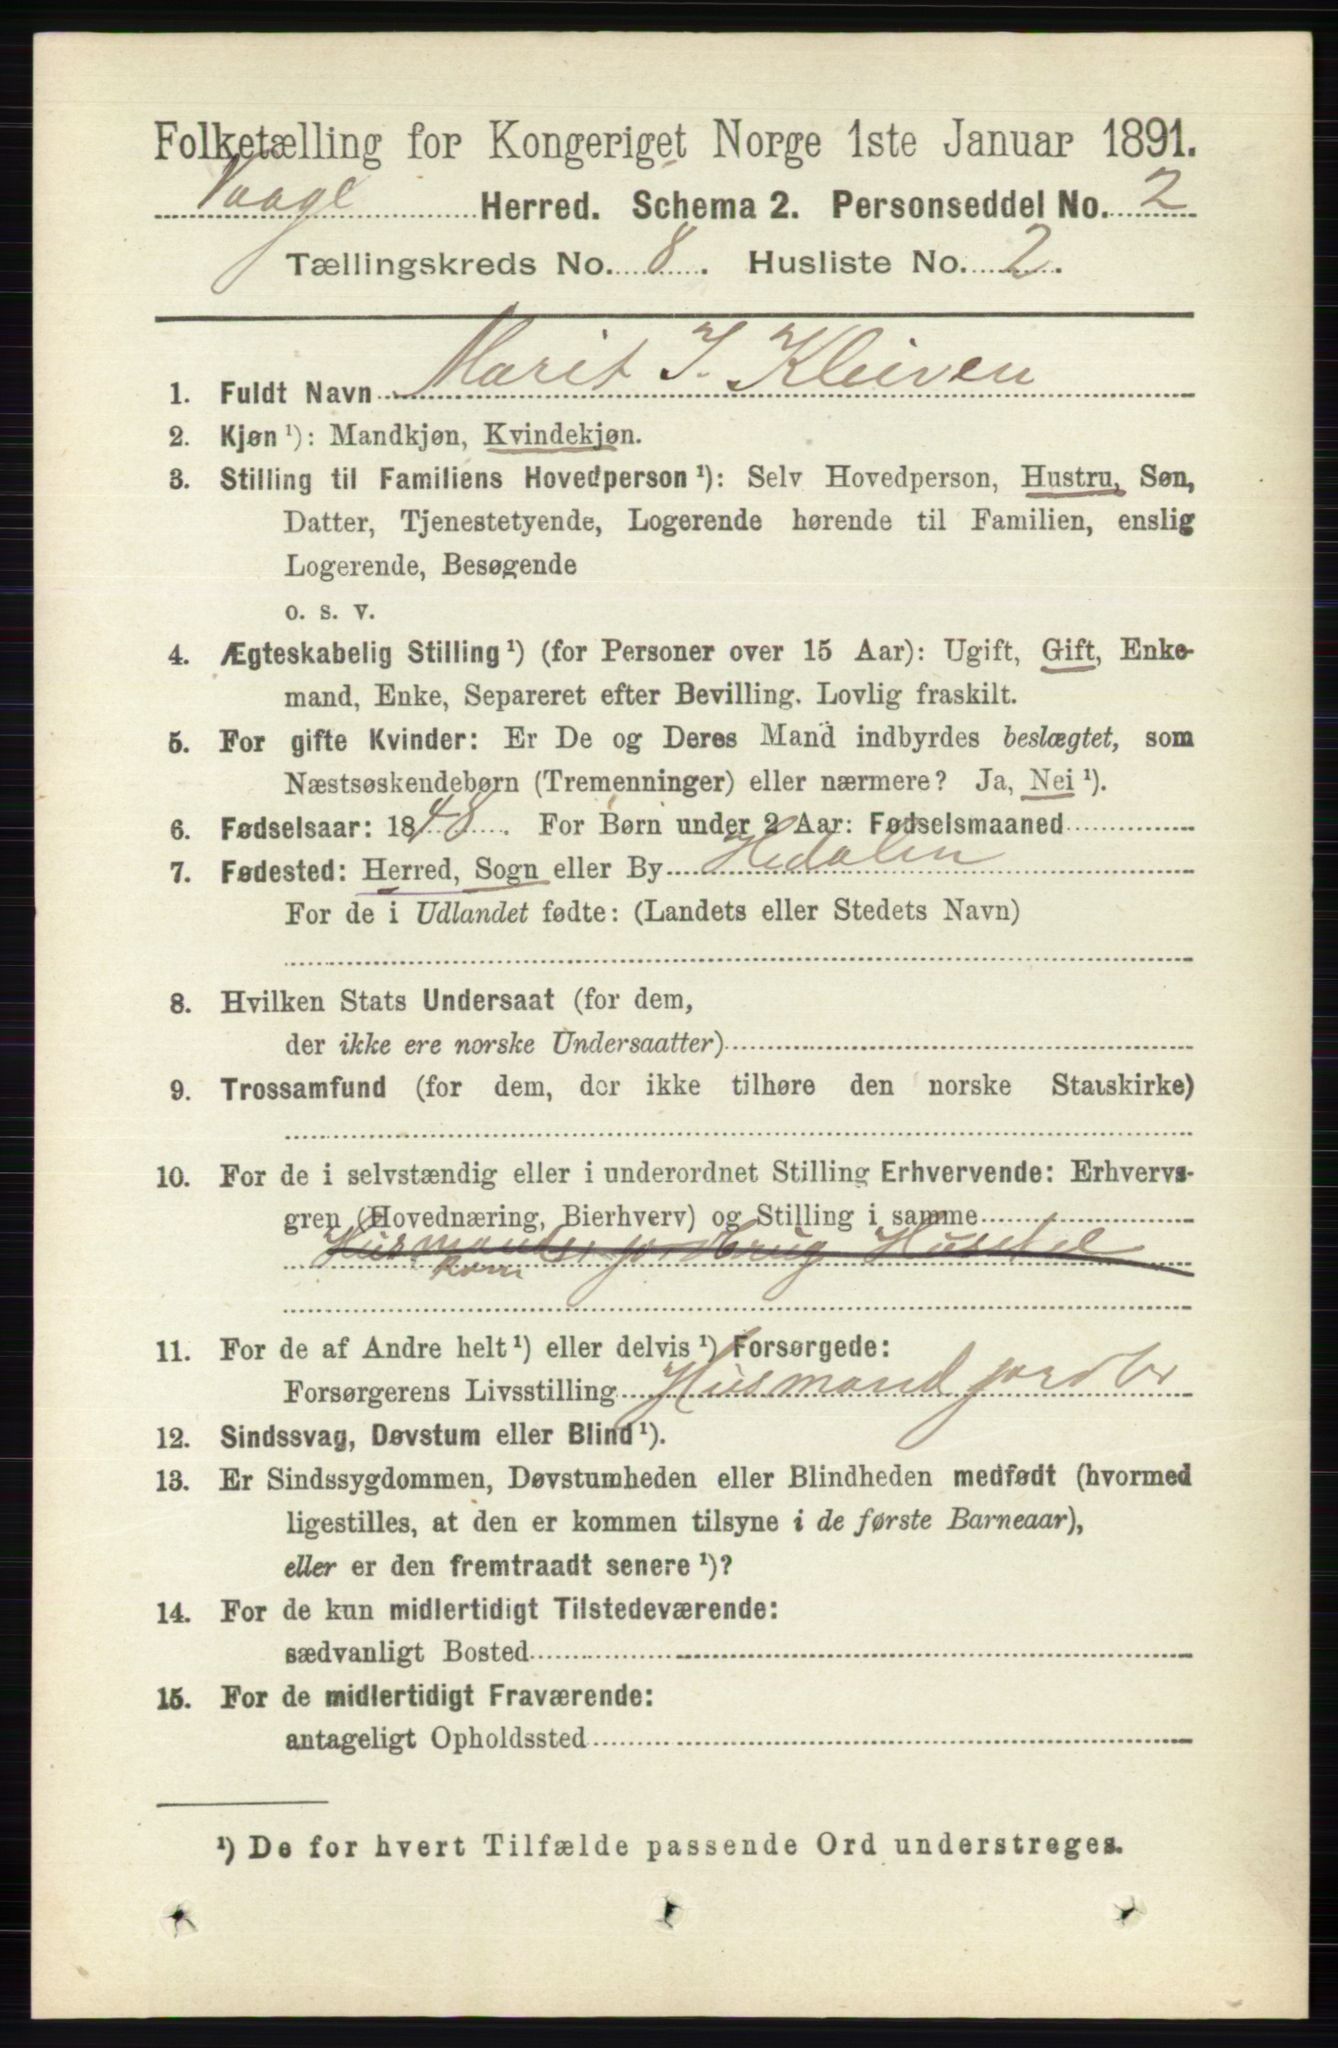 Folketælling for Kongeriget Norge 1ste Januar 1891.
Vaage Herred. Schema 2. Personseddel No. 2
Tællingskreds No. 8. Husliste No. 2.
1. Fuldt Navn Marit I. Kleiven
2. Kjøn ¹): Mandkjøn, Kvindekjøn.
3. Stilling til Familiens Hovedperson ¹): Selv Hovedperson, Hustru, Søn,
Datter, Tjenestetyende, Logerende hørende til Familien, enslig
Logerende, Besøgende
o. s. v.
4. Ægteskabelig Stilling ¹) (for Personer over 15 Aar): Ugift, Gift, Enke-
mand, Enke, Separeret efter Bevilling. Lovlig fraskilt.
5. For gifte Kvinder: Er De og Deres Mand indbyrdes beslægtet, som
Næstsøskendebørn (Tremenninger) eller nærmere? Ja, Nei ¹).
6. Fødselsaar: 1848. For Børn under 2 Aar: Fødselsmaaned
7. Fødested: Herred, Sogn eller By Hedalen
For de i Udlandet fødte: (Landets eller Stedets Navn)
8. Hvilken Stats Undersaat (for dem,
der ikke ere norske Undersaatter)
9. Trossamfund (for dem, der ikke tilhøre den norske Statskirke)
10. For de i selvstændig eller i underordnet Stilling Erhvervende: Erhvervs-
gren (Hovednæring, Bierhverv) og Stilling i samme
Husmands jordbrug Husstel
Kone
11. For de af Andre helt ¹) eller delvis ¹) Forsørgede:
Forsørgerens Livsstilling Husmand jordbr
12. Sindssvag, Døvstum eller Blind ¹).
13. Er Sindssygdommen, Døvstumheden eller Blindheden medfødt (hvormed
ligestilles, at den er kommen tilsyne i de første Barneaar),
eller er den fremtraadt senere ¹)?
14. For de kun midlertidigt Tilstedeværende:
sædvanligt Bosted
15. For de midlertidigt Fraværende:
antageligt Opholdssted
¹) De for hvert Tilfælde passende Ord understreges.